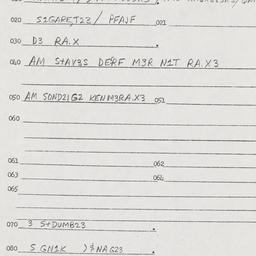 020 S1GARETZ3/ PFAJF 021
030 D3 RA.X
040 AM STAV3S DERF M3R N1T RA.X3
050 AM SOND21G2 KENM3RA.X3 051
060
061 062
063 064
065
070 3 STDUMB23
080 S GH1K )3NAG23